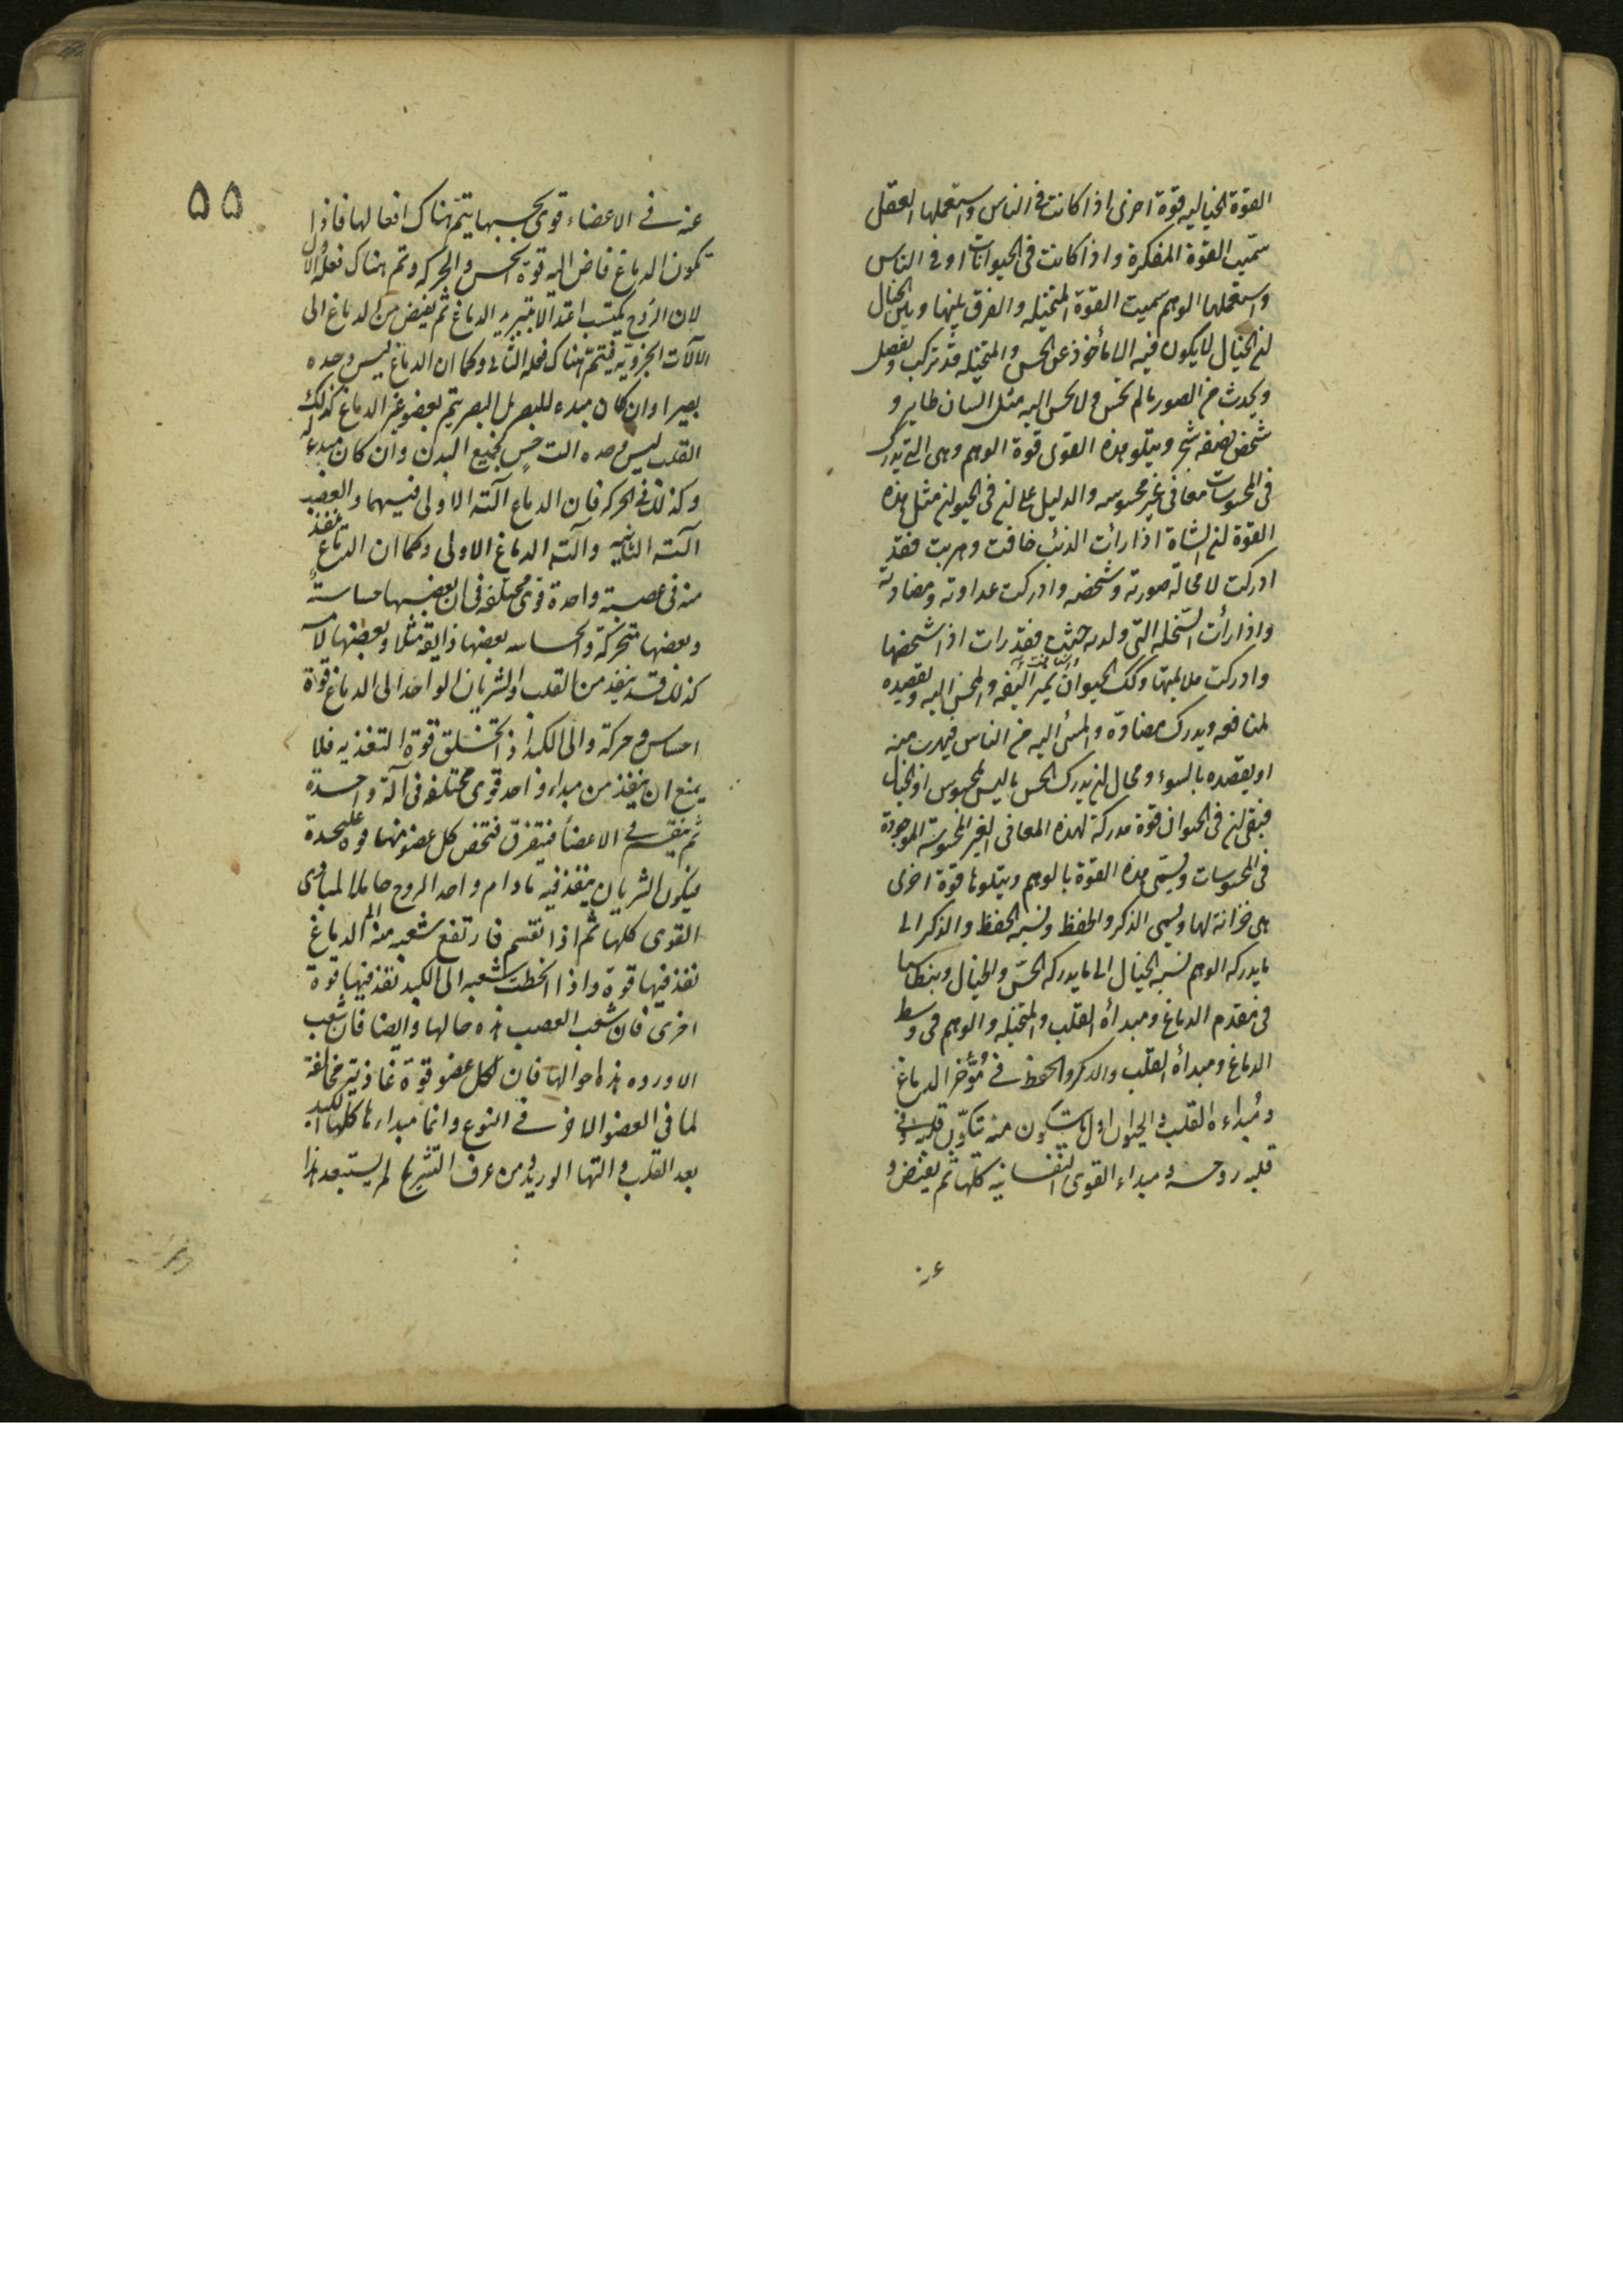 القوة الخياليه قوة اخرى اذا كانت فى الناس واستعملها العقل
سمّيت القوة المفكرة واذا كانت فى الحيوانات او فى الناس
واستعملها الوهم سميت القوة المتخيله والفرق بينها وبين الخيال
ان الخيال لا يكون فيه الا مأخوذ عن الحس والمتخيله قد تركب وتفصل
ويحدث من الصور ما لم تحس ولا يحس اليه مثل انسان طاير و
شخص نصفه شجر ويتلو هذه القوى قوة الوهم وهى التى تدرك
فى المحسوسات معانى غير محسوسه والدليل على ان فى الحيوان مثل هذه
القوة ان الشاة اذا رأت الذئب خافت وهربت فقد
ادركت لا محالة صورته وشخصه وادركت عداوته ومضادته
واذا رأت السخلة التى ولدته حنت فقد رات اذا شخصها
وادركت ملايمتها وكك الحيوان يميز اليفه والمحسن اليه ويقصده
لمنافعه ويدرك مضادّه والمسئ اليه من الناس فيهرب منه
او يقصده بالسوء ومحال ان يدرك الحس ما ليس بمحسوس او الخيال
فبقى ان فى الحيوان قوة مدركة لهذه المعانى الغير المحسوسة الموجودة
فى المحسوسات وتسمى هذه القوة بالوهم ويتلوها قوة اخرى
هى خزانة لها ويسمى الذكر والحفظ ونسبة الحفظ والذكر الى
ما يدركه الوهم نسبة الخيال الى ما يدركه الحسّ والخيال وبنطاسيا
فى مقدم الدماغ ومبدأه القلب والمتخيله والوهم فى وسط
الدماغ ومبدأه القلب والذكر والحفظ فى مؤخر الدماغ
ومبداءه القلب والحيوان اول ما يتكون منه يتكوّن قلبه وفى
قلبه روحه ومبداء القوى النفسانيه كلها ثم يفيض و
عنه
۵۵
عنه فى الاعضاء قوى بحسبها يتمّ هناك افعالها فاذا
تكون الدماغ فاض اليه قوة الحس والحركه وتم هناك فعله الاول
لان الروح يكتسب اعتدالا بتبريد الدماغ ثم يفيض من الدماغ الى
الآلات الجزويّه فيتمّ هناك فعله الثانى وكما ان الدماغ ليس وحده
بصيرا وان كان مبدء للبصر بل البصر يتم بعضو غير الدماغ كذلك
القلب ليس وحده الت حس لجميع البدن وان كان مبدء له
وكذلك فى الحركه فان الدماغ آلته الاولى فيهما والعصب
آلته الثانيه وآلته الدماغ الاولى وكما ان الدماغ ينفذ
منه فى عصبة واحدة قوى مختلفه فى ان بعضها حساسة
وبعضها متحركة والحساسه بعضها ذايقه مثلا وبعضها لامسه
كذلك قد ينفذ من القلب والشريان الواحد الى الدماغ قوة
احساس وحركة والى الكبد اذ اتخلق قوة التغذيه فلا
يمنع ان ينفذ من مبداء واحد قوى مختلفه فى آلة واحدة
ثم ينقسم فى الاعضاء فيتفرق فتخص كل عضو منها قوة عليحدة
فيكون الشريان ينفذ فيه ما دام واحد الروح حاملا لمبادى
القوى كلها ثم اذا انقسم فارتفع شعبه منه الى الدماغ
نفذ فيها قوة واذا انحطت شعبه الى الكبد نفذ فيها قوة
اخرى فان شعب العصب هذه حالها وايضا فان شعب
الاورده هذه احوالها فان لكل عضو قوة غاذية مخالفة
لما فى العضو الاخر فى النوع وانما مبداءها كلها الكبد
بعد القلب والتها الوريد ومن عرف التشريح لم يستبعد هذا